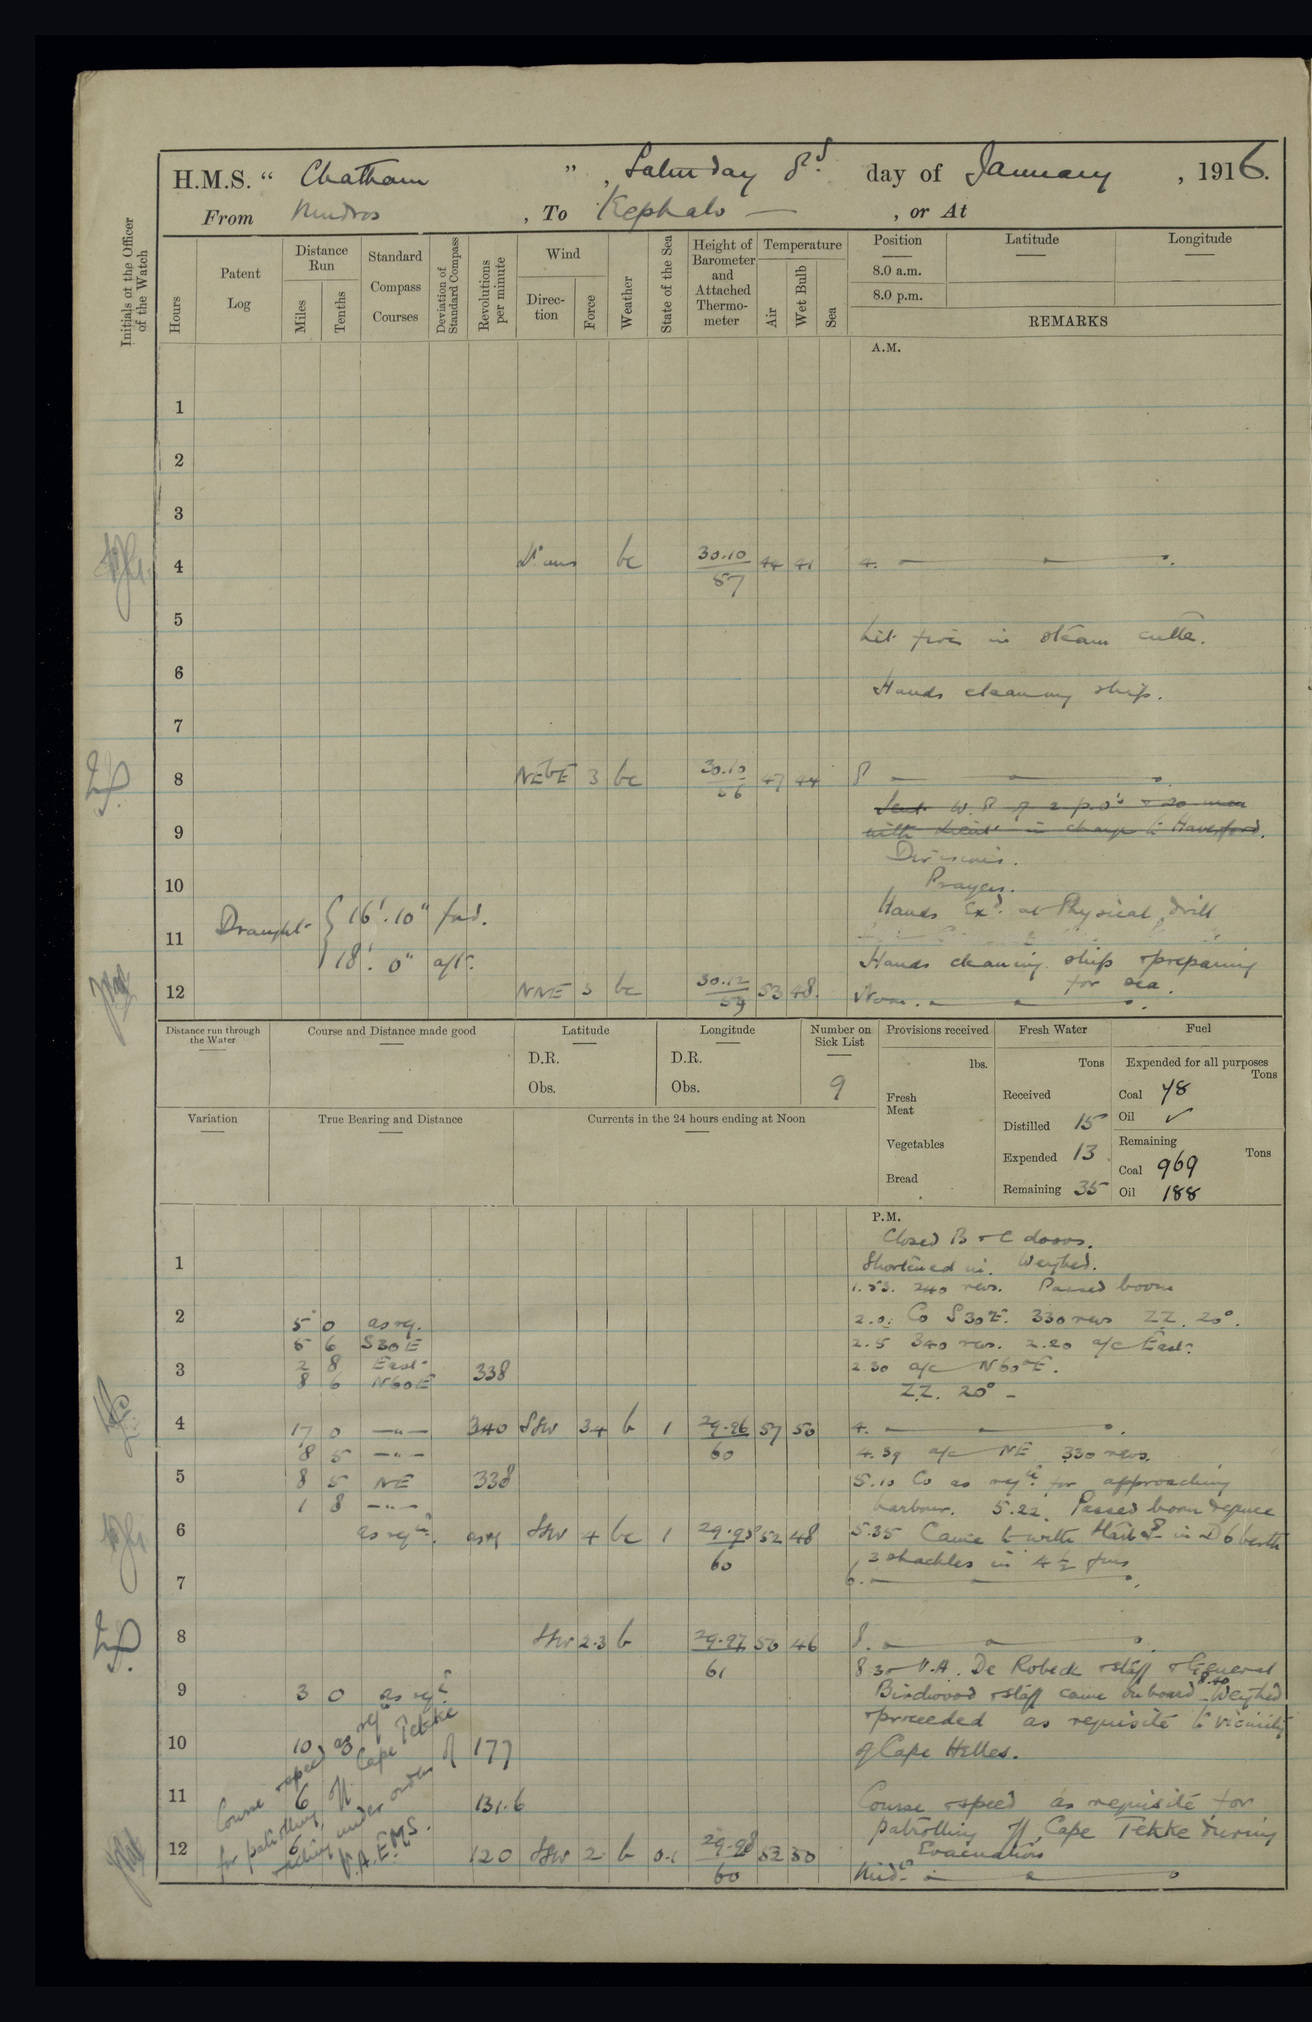 H.M.S. “ Chatham ”, Saturday 8th day of January, 1916.
From Mudros, To Kephalo — , or At
Initials of the Officer of the Watch
Hours
Patent Log
Distance Run
Miles
Tenths
Standard Compass Courses
Deviation of Standard Compass
Revolutions per minute
Wind
Direction
Force
Weather
State of the Sea
Height of Barometer and Attached Thermometer
Temperature
Air
Wet Bulb
Sea
Position
Latitude
Longitude
8.0 a.m.
8.0 p.m.
REMARKS
A.M.
1
2
3
4 bc 30.10 57 44 41 4. —
5
Lit fires in steam cutter.
6
Hands cleaning ship.
7
8 NEbE 3 bc 30.10 56 47 44 8 —
Sent W.P. of 2 p.o's & 20 men
9 with Lieut in charge to Haverford.
Divisions.
10 Prayers.
Draught { 16'. 10" ford. Hands Exd. at Physical drill
11
18'. 0" aft. Hands cleaning ship & preparing
for sea.
12 NNE 3 bc 30.12 59 53 48. Noon. —
Distance run through the Water
Course and Distance made good
Latitude
D.R.
Obs.
Longitude
D.R.
Obs.
Number on Sick List
9
Provisions received
lbs.
Fresh Meat
Vegetables
Bread
Fresh Water
Tons
Received
Distilled 15
Expended 13
Remaining 35
Fuel
Expended for all purposes
Tons
Coal 48
Oil ✓
Remaining
Tons
Coal 969
Oil 188
Variation
True Bearing and Distance
Currents in the 24 hours ending at Noon
P.M.
Closed B & C doors.
1 Shortened in. Weighed.
1.53. 240 revs. Passed boom
2 5 0 as rq. 2.0. Co S30E. 330 revs ZZ. 20°.
5 6 S30E 2.5 340 revs. 2.20 a/c East.
2 8 East 2.30 a/c N60°E.
3 8 6 N60E 338
ZZ. 20° –
4 17 0 —"— 340 SSW 3.4 b 1 29.96 60 57 50 4. —
8 5 —"— 4.39 a/c NE 330 revs.
5 8 5 NE 338 5.10 Co as reqte for approaching
1 8 —"— harbour. 5.22. Passed boom defence
6 as reqte. as rq SSW 4 bc 1 29.98 60 52 48 5.35 Came to with Starbd in D6 berth
3 shackles in 4½ fms
7 6. —
8 SSW 2.3 b 29.97 61 50 46 8. —
8.30 V.A. De Robeck & staff & General
9 3 0 as reqte Birdwood & staff came onboard 8.40 Weighed
& proceeded as requisite to vicinity
10 10 3 177 of Cape Helles.
11 6 131.6 Course & speed as requisite for
patrolling off Cape Tekke during
Evacuation
12 6 120 SSW 2 b 0.1 29.98 60 52 50
Midt —
Course & speed as reqte
for patrolling off Cape Tekke
acting under orders of
V.A.E.M.S.